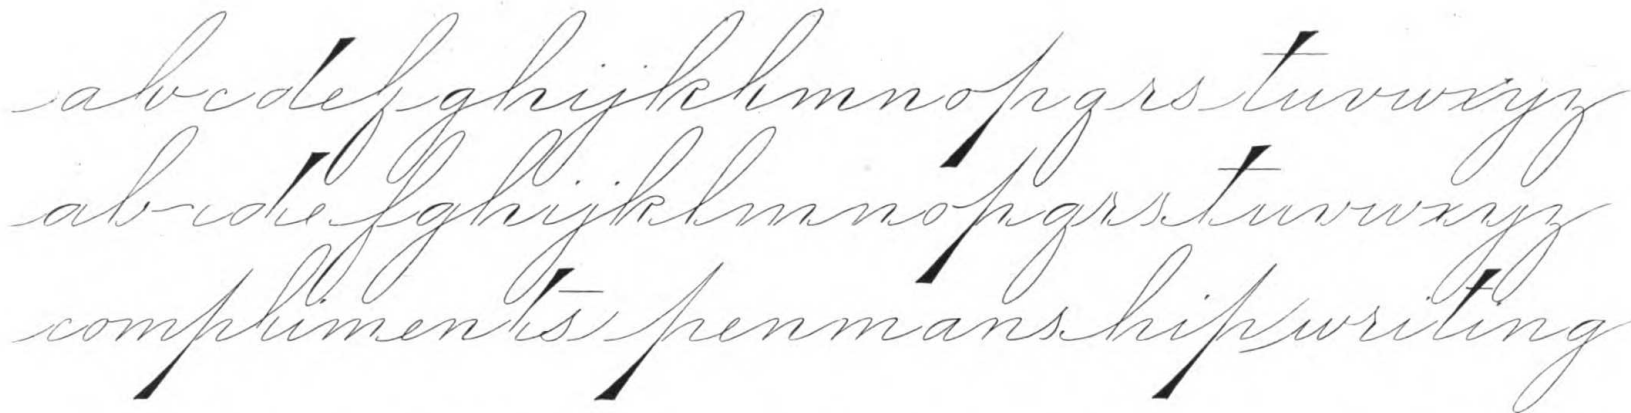 abcdefghijklmnopqrstuvwxyz
abcdefghijklmnopqrstuvwxyz
compliments penmanship writing